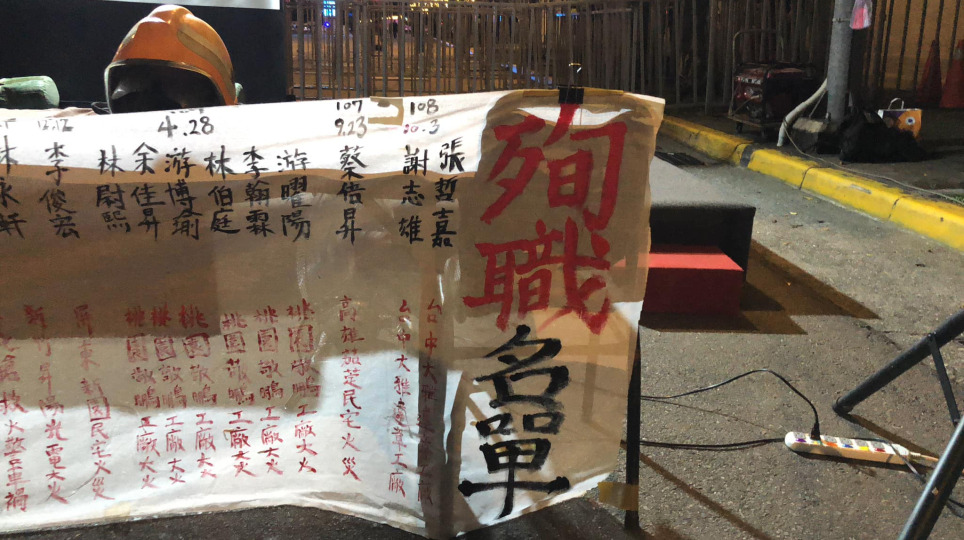 殉職名單
108
10.3
張哲嘉
謝志雄
台中大雅違章工廠
107
9.23
蔡倍昇
高雄茄萣民宅火災
4.28
游曜陽
桃園敬鵬工廠大火
李翰霖
桃園敬鵬工廠大火
林伯庭
桃園敬鵬工廠大火
游博瑜
桃園敬鵬工廠大火
余佳昇
桃園敬鵬工廠大火
林尉熙
桃園敬鵬工廠大火
李俊宏
屏東新園民宅火災
新竹昇陽光電大火